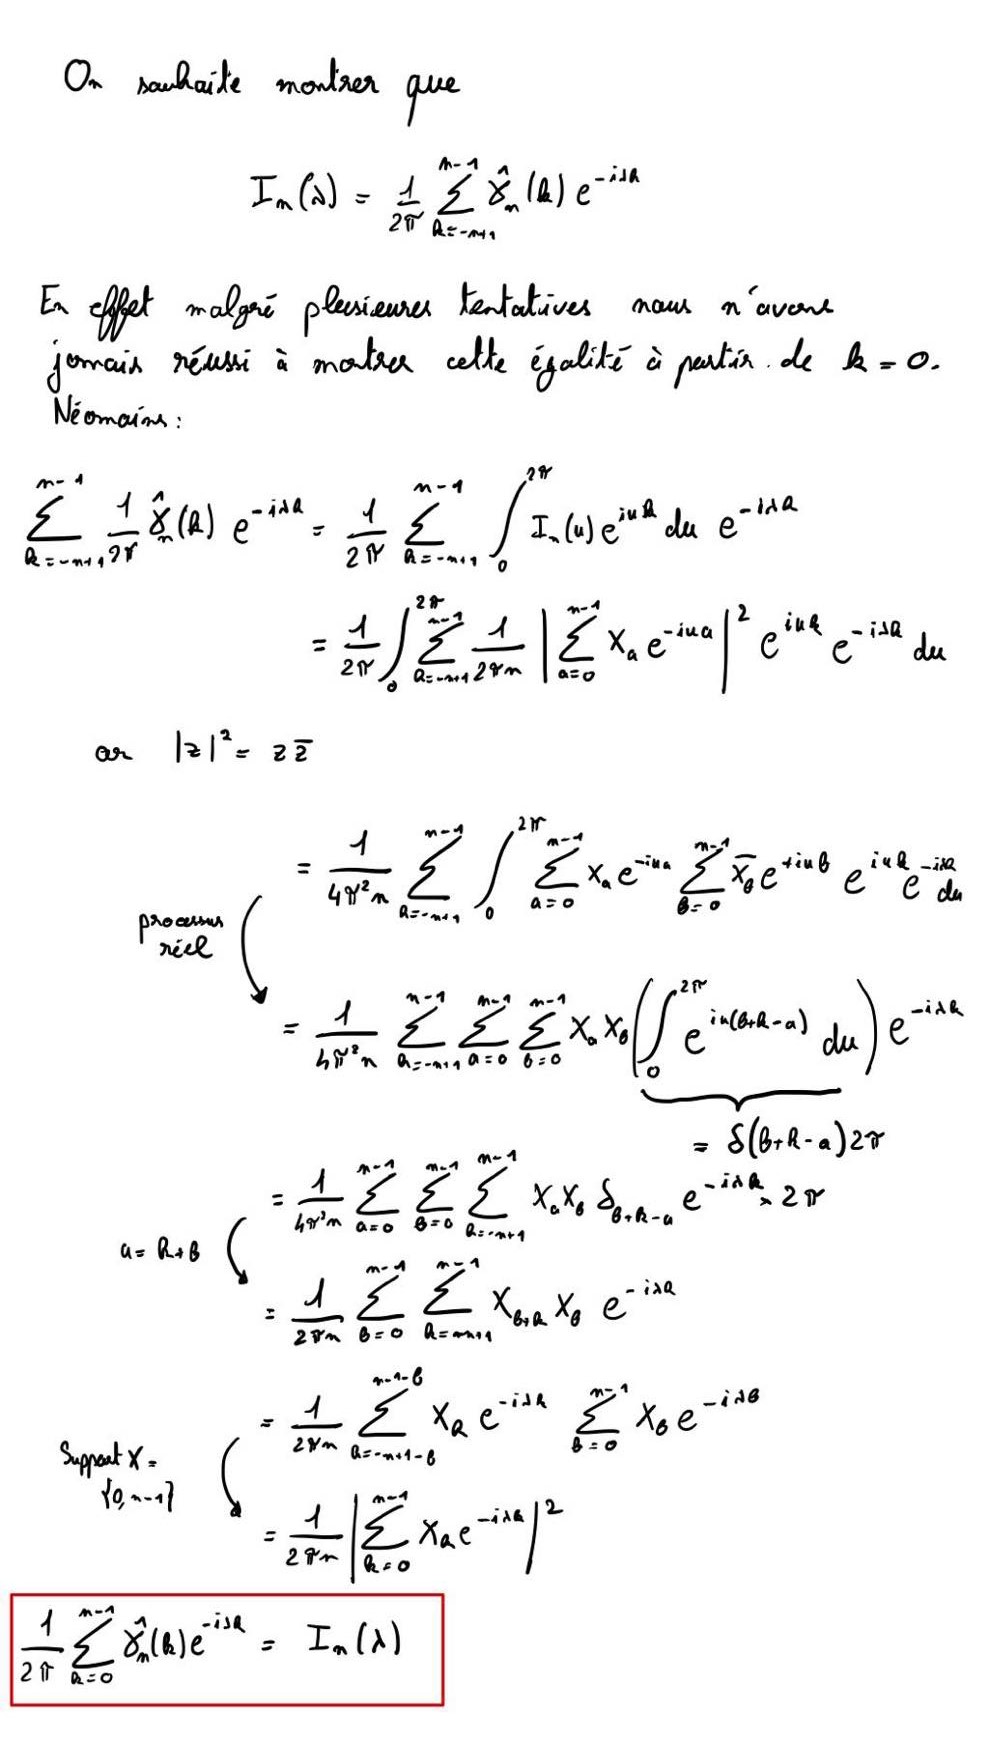 On souhaite montrer que
I_n(λ) = 1/2π ∑_{k=-n+1}^{n-1} γ̂_n(k) e^{-iλk}
En effet malgré plusieures tentatives nous n'avons
jamais réussi à montrer cette égalité à partir de k = 0.
Néomains :
∑_{k=-n+1}^{n-1} 1/2π γ̂_n(k) e^{-iλk} = 1/2π ∑_{k=-n+1}^{n-1} ∫_0^{2π} I_n(u) e^{iuk} du e^{-iλk}
= 1/2π ∫_0^{2π} ∑_{k=-n+1}^{n-1} 1/2πn |∑_{a=0}^{n-1} X_a e^{-iua}|^2 e^{iuk} e^{-iλk} du
or |z|^2 = z z̄
= 1/4π²n ∑_{k=-n+1}^{n-1} ∫_0^{2π} ∑_{a=0}^{n-1} X_a e^{-iua} ∑_{b=0}^{n-1} X̄_b e^{+iub} e^{iuk} e^{-iλk} du
processus
réel
= 1/4π²n ∑_{k=-n+1}^{n-1} ∑_{a=0}^{n-1} ∑_{b=0}^{n-1} X_a X_b (∫_0^{2π} e^{iu(b+k-a)} du) e^{-iλk}
= δ(b+k-a) 2π
= 1/4π²n ∑_{a=0}^{n-1} ∑_{b=0}^{n-1} ∑_{k=-n+1}^{n-1} X_a X_b δ_{b+k-a} e^{-iλk} × 2π
a = k+b
= 1/2πn ∑_{b=0}^{n-1} ∑_{k=-n+1}^{n-1} X_{b+k} X_b e^{-iλk}
= 1/2πn ∑_{k=-n+1-b}^{n-1-b} X_k e^{-iλk} ∑_{b=0}^{n-1} X_b e^{-iλb}
Support X =
{0, n-1}
= 1/2πn |∑_{k=0}^{n-1} X_k e^{-iλk}|^2
1/2π ∑_{k=0}^{n-1} γ̂_n(k) e^{-iλk} = I_n(λ)